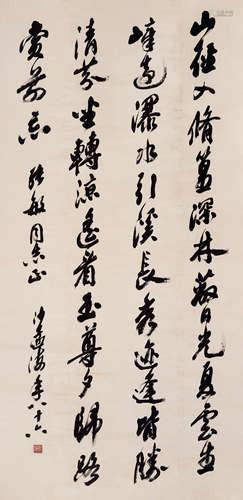 山徑入脩篁深林蔽日光夏雲生
嶂遠瀑水引溪長秀迹逢皆勝
清芬坐轉涼遙看玉尊夕歸路
賞前忘 張敏同志正 沙孟海年八十六